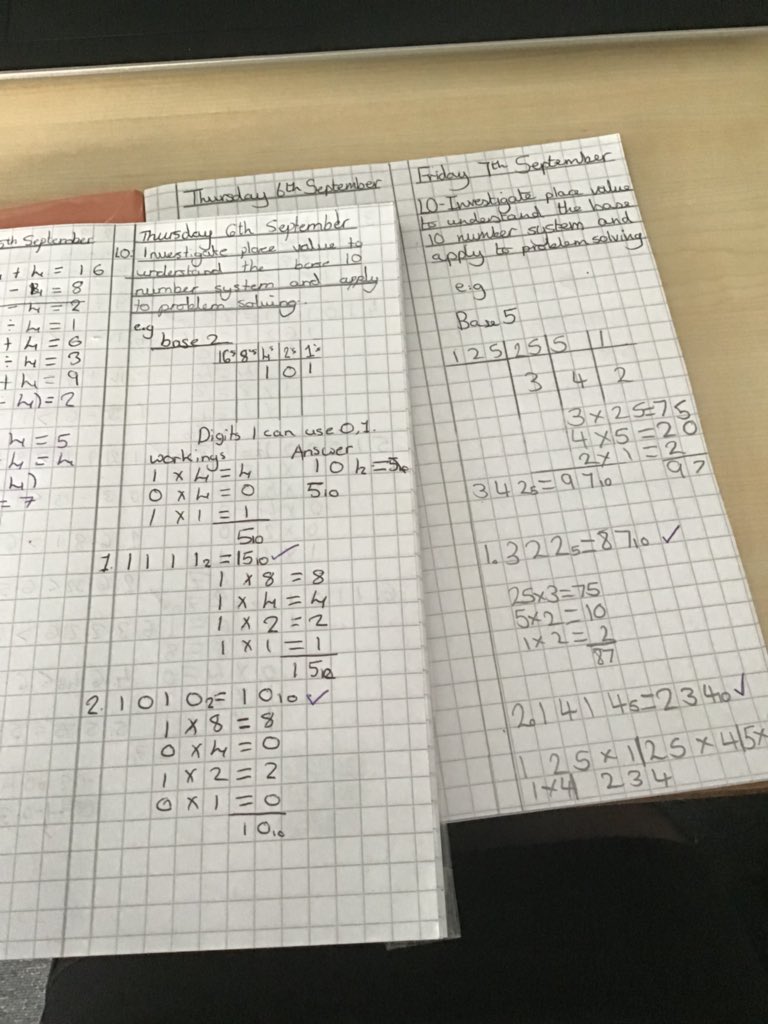 5th September
+ 4 = 16
- 4 = 8
- 4 = 2
÷ 4 = 1
+ 4 = 6
÷ 4 = 3
+ 4 = 9
- 4) = 2
4 = 5
4 = 4
4)
= 7
Thursday 6th September
Thursday 6th September
10. Investigate place value to
understand the base 10
number system and apply
to problem solving.
eg
base 2
16s 8s 4s 2s 1s
1 0 1
Digits I can use 0,1.
Workings Answer
1 x 4 = 4 101₂ = 5₁₀
0 x 4 = 0 5₁₀
1 x 1 = 1
5₁₀
1. 1 1 1 1₂ = 15₁₀ ✓
1 x 8 = 8
1 x 4 = 4
1 x 2 = 2
1 x 1 = 1
15₁₀
2. 1 0 1 0₂ = 10₁₀ ✓
1 x 8 = 8
0 x 4 = 0
1 x 2 = 2
0 x 1 = 0
10₁₀
Friday 7th September
10-Investigate place value
to understand the base
10 number system and
apply to problem solving
e.g
Base 5
125 25 5 1
3 4 2
3 x 25 = 75
4 x 5 = 20
2 x 1 = 2
97
342₅ = 97₁₀
1. 322₅ = 87₁₀ ✓
25 x 3 = 75
5 x 2 = 10
1 x 2 = 2
87
2. 1414₅ = 234₁₀ ✓
125 x 1 | 25 x 4 | 5 x
1 x 4 | 234